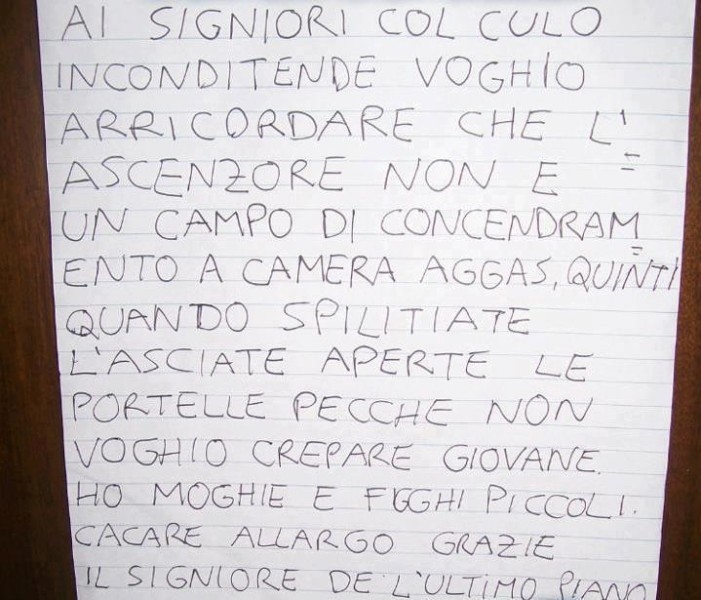 AI SIGNIORI COL CULO
INCONDITENDE VOGHIO
ARRICORDARE CHE L'=
ASCENZORE NON E
UN CAMPO DI CONCENDRAM=
ENTO A CAMERA AGGAS, QUINTI
QUANDO SPILITIATE
L'ASCIATE APERTE LE
PORTELLE PECCHE NON
VOGHIO CREPARE GIOVANE.
HO MOGHIE E FIGGHI PICCOLI.
CACARE ALLARGO GRAZIE
IL SIGNIORE DE L'ULTIMO PIANO